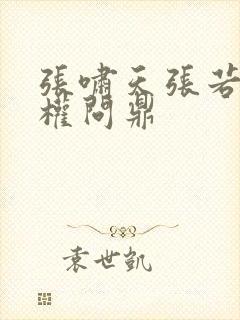 張嘯天張若
權問鼎
袁世凱